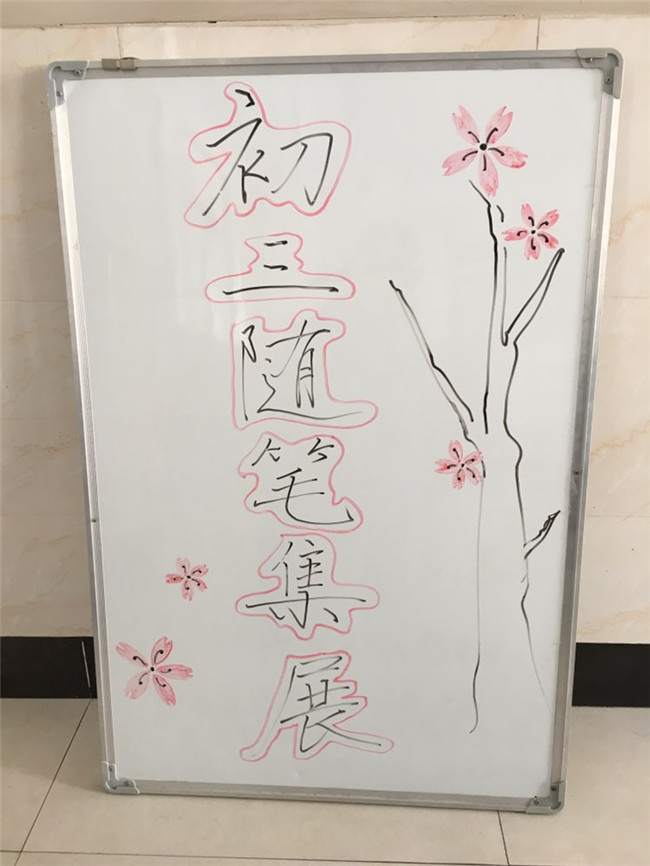 初三随笔集展